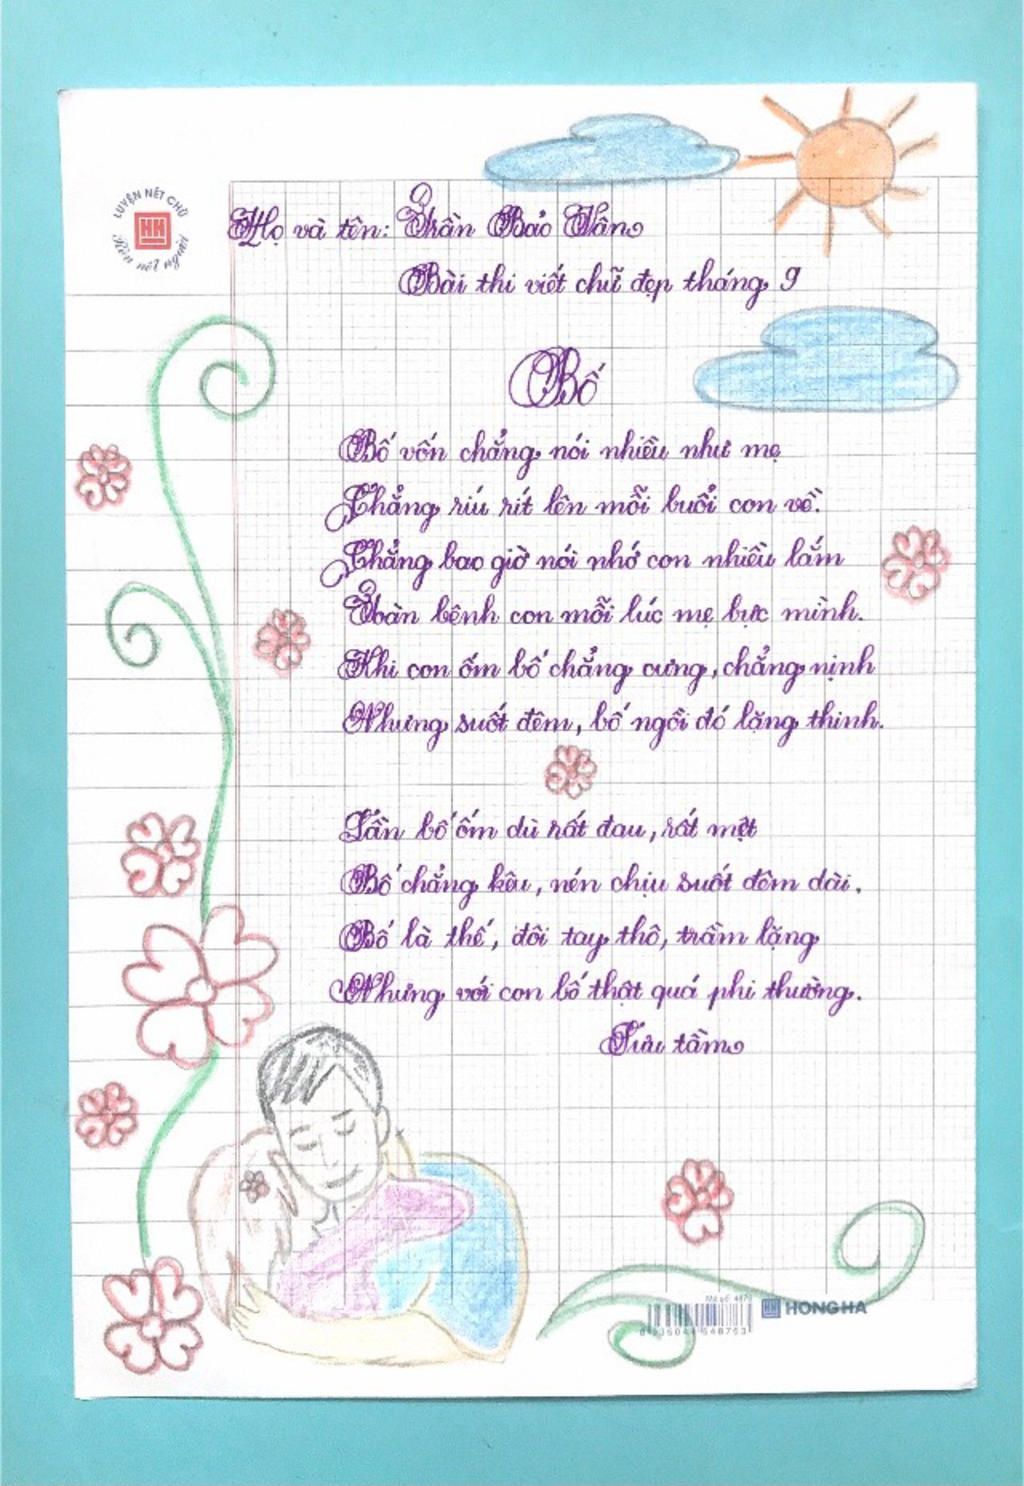 LUYỆN NÉT CHỮ
HH
Rèn nết người
Họ và tên: Trần Bảo Vân
Bài thi viết chữ đẹp tháng 9
Bố
Bố vốn chẳng nói nhiều như mẹ
Chẳng ríu rít lên mỗi buổi con về.
Chẳng bao giờ nói nhớ con nhiều lắm
Toàn bênh con mỗi lúc mẹ bực mình.
Khi con ốm bố chẳng cưng, chẳng nịnh
Nhưng suốt đêm, bố ngồi đó lặng thinh.
Lần bố ốm dù rất đau, rất mệt
Bố chẳng kêu, nén chịu suốt đêm dài.
Bố là thế, đôi tay thô, trầm lặng
Nhưng với con bố thật quá phi thường.
Sưu tầm
HONG HA